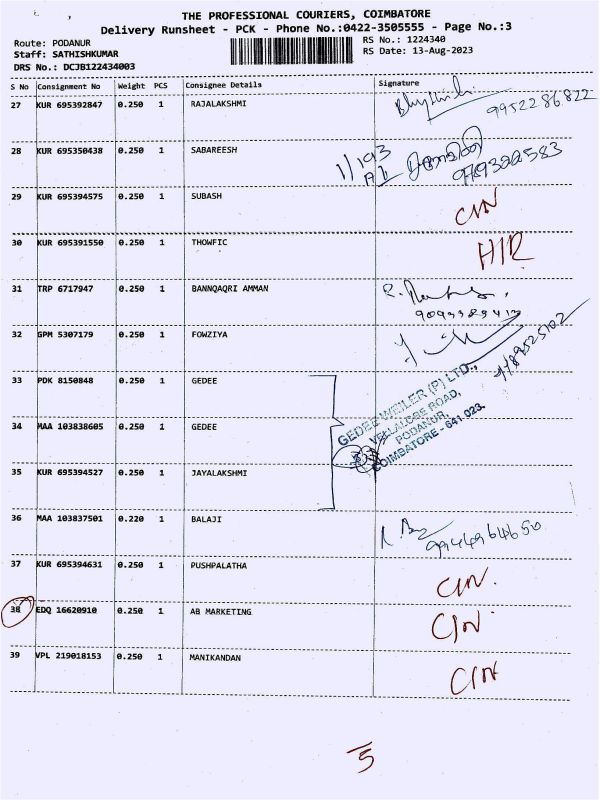 THE PROFESSIONAL COURIERS, COIMBATORE
Delivery Runsheet - PCK - Phone No.:0422-3505555 - Page No.:3
Route: PODANUR
Staff: SATHISHKUMAR
DRS No.: DCJB122434003
RS No.: 1224340
RS Date: 13-Aug-2023
S No Consignment No Weight PCS Consignee Details Signature
27 KUR 695392847 0.250 1 RAJALAKSHMI 9952286822
28 KUR 695350438 0.250 1 SABAREESH 1/193
29 KUR 695394575 0.250 1 SUBASH CIN
30 KUR 695391550 0.250 1 THOWFIC
31 TRP 6717947 0.250 1 BANNQAQRI AMMAN
32 GPM 5307179 0.250 1 FOWZIYA
33 PDK 8150848 0.250 1 GEDEE
34 MAA 103838605 0.250 1 GEDEE
35 KUR 695394527 0.250 1 JAYALAKSHMI
GEDEE WEILER (P) LTD.,
VELLALORE ROAD,
PODANUR,
COIMBATORE - 641 023.
36 MAA 103837501 0.220 1 BALAJI
37 KUR 695394631 0.250 1 PUSHPALATHA CIN
38 EDQ 16620910 0.250 1 AB MARKETING CIN
39 VPL 219018153 0.250 1 MANIKANDAN CIN